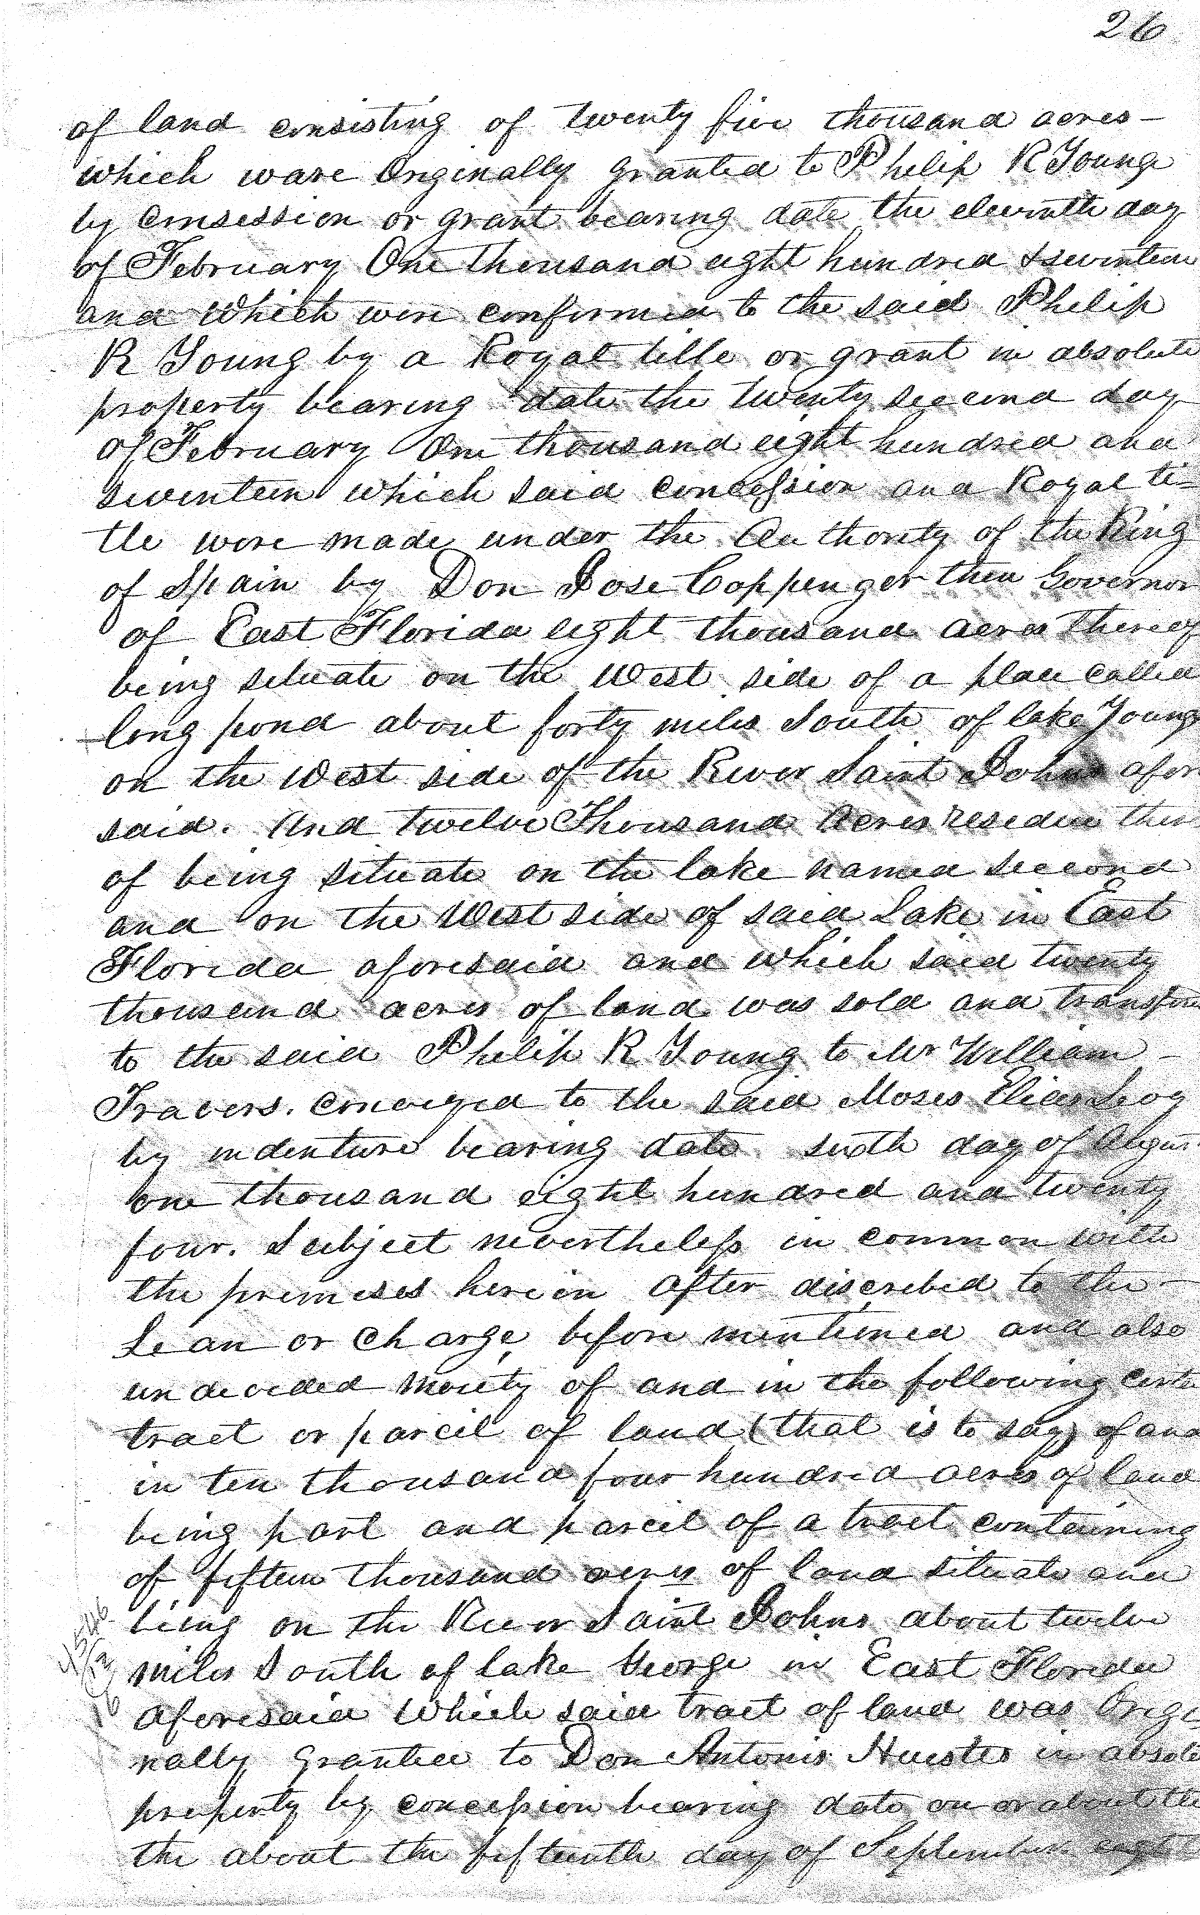 26
of land consisting of twenty five thousand acres -
which ware Originally granted to Philip R Younge
by consession or grant bearing date the eleventh day
of February One thousand eight hundred & seventeen
and which were confirmed to the said Philip
R Young by a Royal title or grant in absolute
property bearing date the twenty second day
of February One thousand eight hundred and
seventeen which said concession and Royal ti=
tle were made under the Authority of the King
of Spain by Don Jose Coppenger then Governor
of East Florida eight thousand acres thereof
being situate on the West side of a place called
long pond about forty miles South of lake Young
on the West side of the River Saint Johns afor
said. And twelve Thousand Acres residue ther
of being situate on the lake named second
and on the West side of said Lake in East
Florida aforesaid and which said twenty
thousand acres of land was sold and transfere
to the said Philip R Young to Mr William -
Travers. conveyed to the said Moses Elias Levy
by indenture bearing date sixth day of August
one thousand eight hundred and twenty
four. Subject nevertheless in common with
the premises herein after discrebed to the -
Lean or Charge before mentioned and also
undecided moiety of and in the following certa
tract or parcel of land (that is to say) of and
in ten thousand four hundred acres of land
being part and parcel of a tract containing
of fifteen thousand acres of land situate and
being on the River Saint Johns about twelve
miles South of lake George in East Florida
aforesaid Which said tract of land was Origi
nally Grantee to Don Antonio Huestes in absole
property by concession bearing date on or about the
the about the fifteenth day of September eight